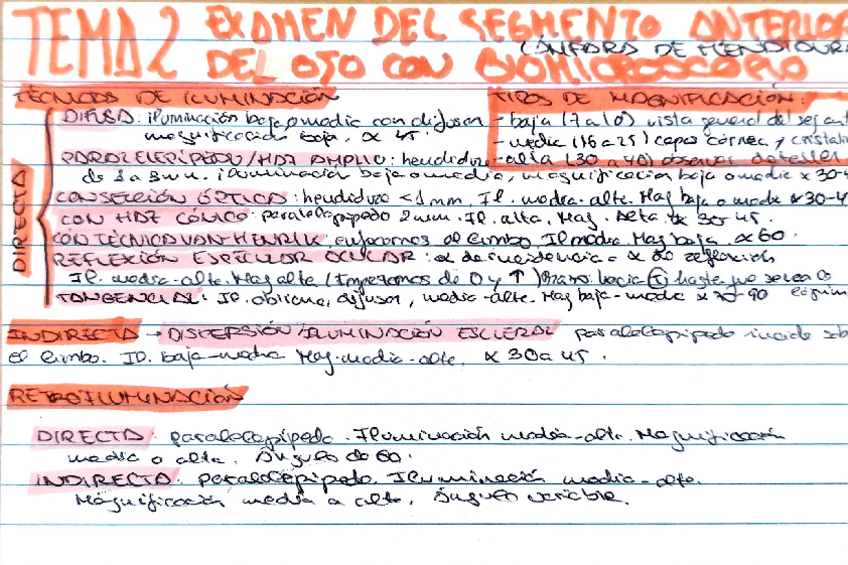 TEMA 2 EXAMEN DEL SEGMENTO ANTERIOR
DEL OJO CON BIOMICROSCOPIO
LÁMPARA DE HENDIDURA
TÉCNICAS DE ILUMINACIÓN
TIPOS DE MAGNIFICACIÓN:
DIFUSA: iluminación baja o media con difusor
magnificación baja, α 45º.
- baja (7 a 10) vista general del seg ant
- media (16 a 25) capas córnea y cristalin
- alta (30 a 40) observar detalles
DIRECTA
PARALELEPÍPEDO/HAZ AMPLIO: hendidura
de 1 a 3mm. iluminación baja o media, magnificación baja o media α 30-4
CONSECCIÓN ÓPTICA: hendidura <1mm, Il. media-alta. Mag baja o media α 30-4
CON HAZ CÓNICO: paralelepípedo 2mm. Il. alta, Mag. Alta α 30-45.
CON TÉCNICA VAN-HENRIK, enfocamos al limbo. Il media. Mag baja. α 60.
REFLEXIÓN ESPECULAR OCULAR: α de incidencia = α de reflexión
Il. media-alta. Mag alta (Empezamos de 0 y ↑) hacia hasta que se vea
TANGENCIAL: Il. oblicua, difusor, media-alta. Mag baja-media α 70-90
INDIRECTA → DISPERSIÓN/ILUMINACIÓN ESCLERAL paralelepípedo incide sob
el limbo. Il. baja-media Mag. media-alta, α 30 a 45.
RETROILUMINACIÓN
DIRECTA: paralelepípedo. Iluminación media-alta. Magnificación
media o alta. Ángulo de 60.
INDIRECTA: paralelepípedo. Iluminación media-alta.
Magnificación media a alta, ángulo variable.